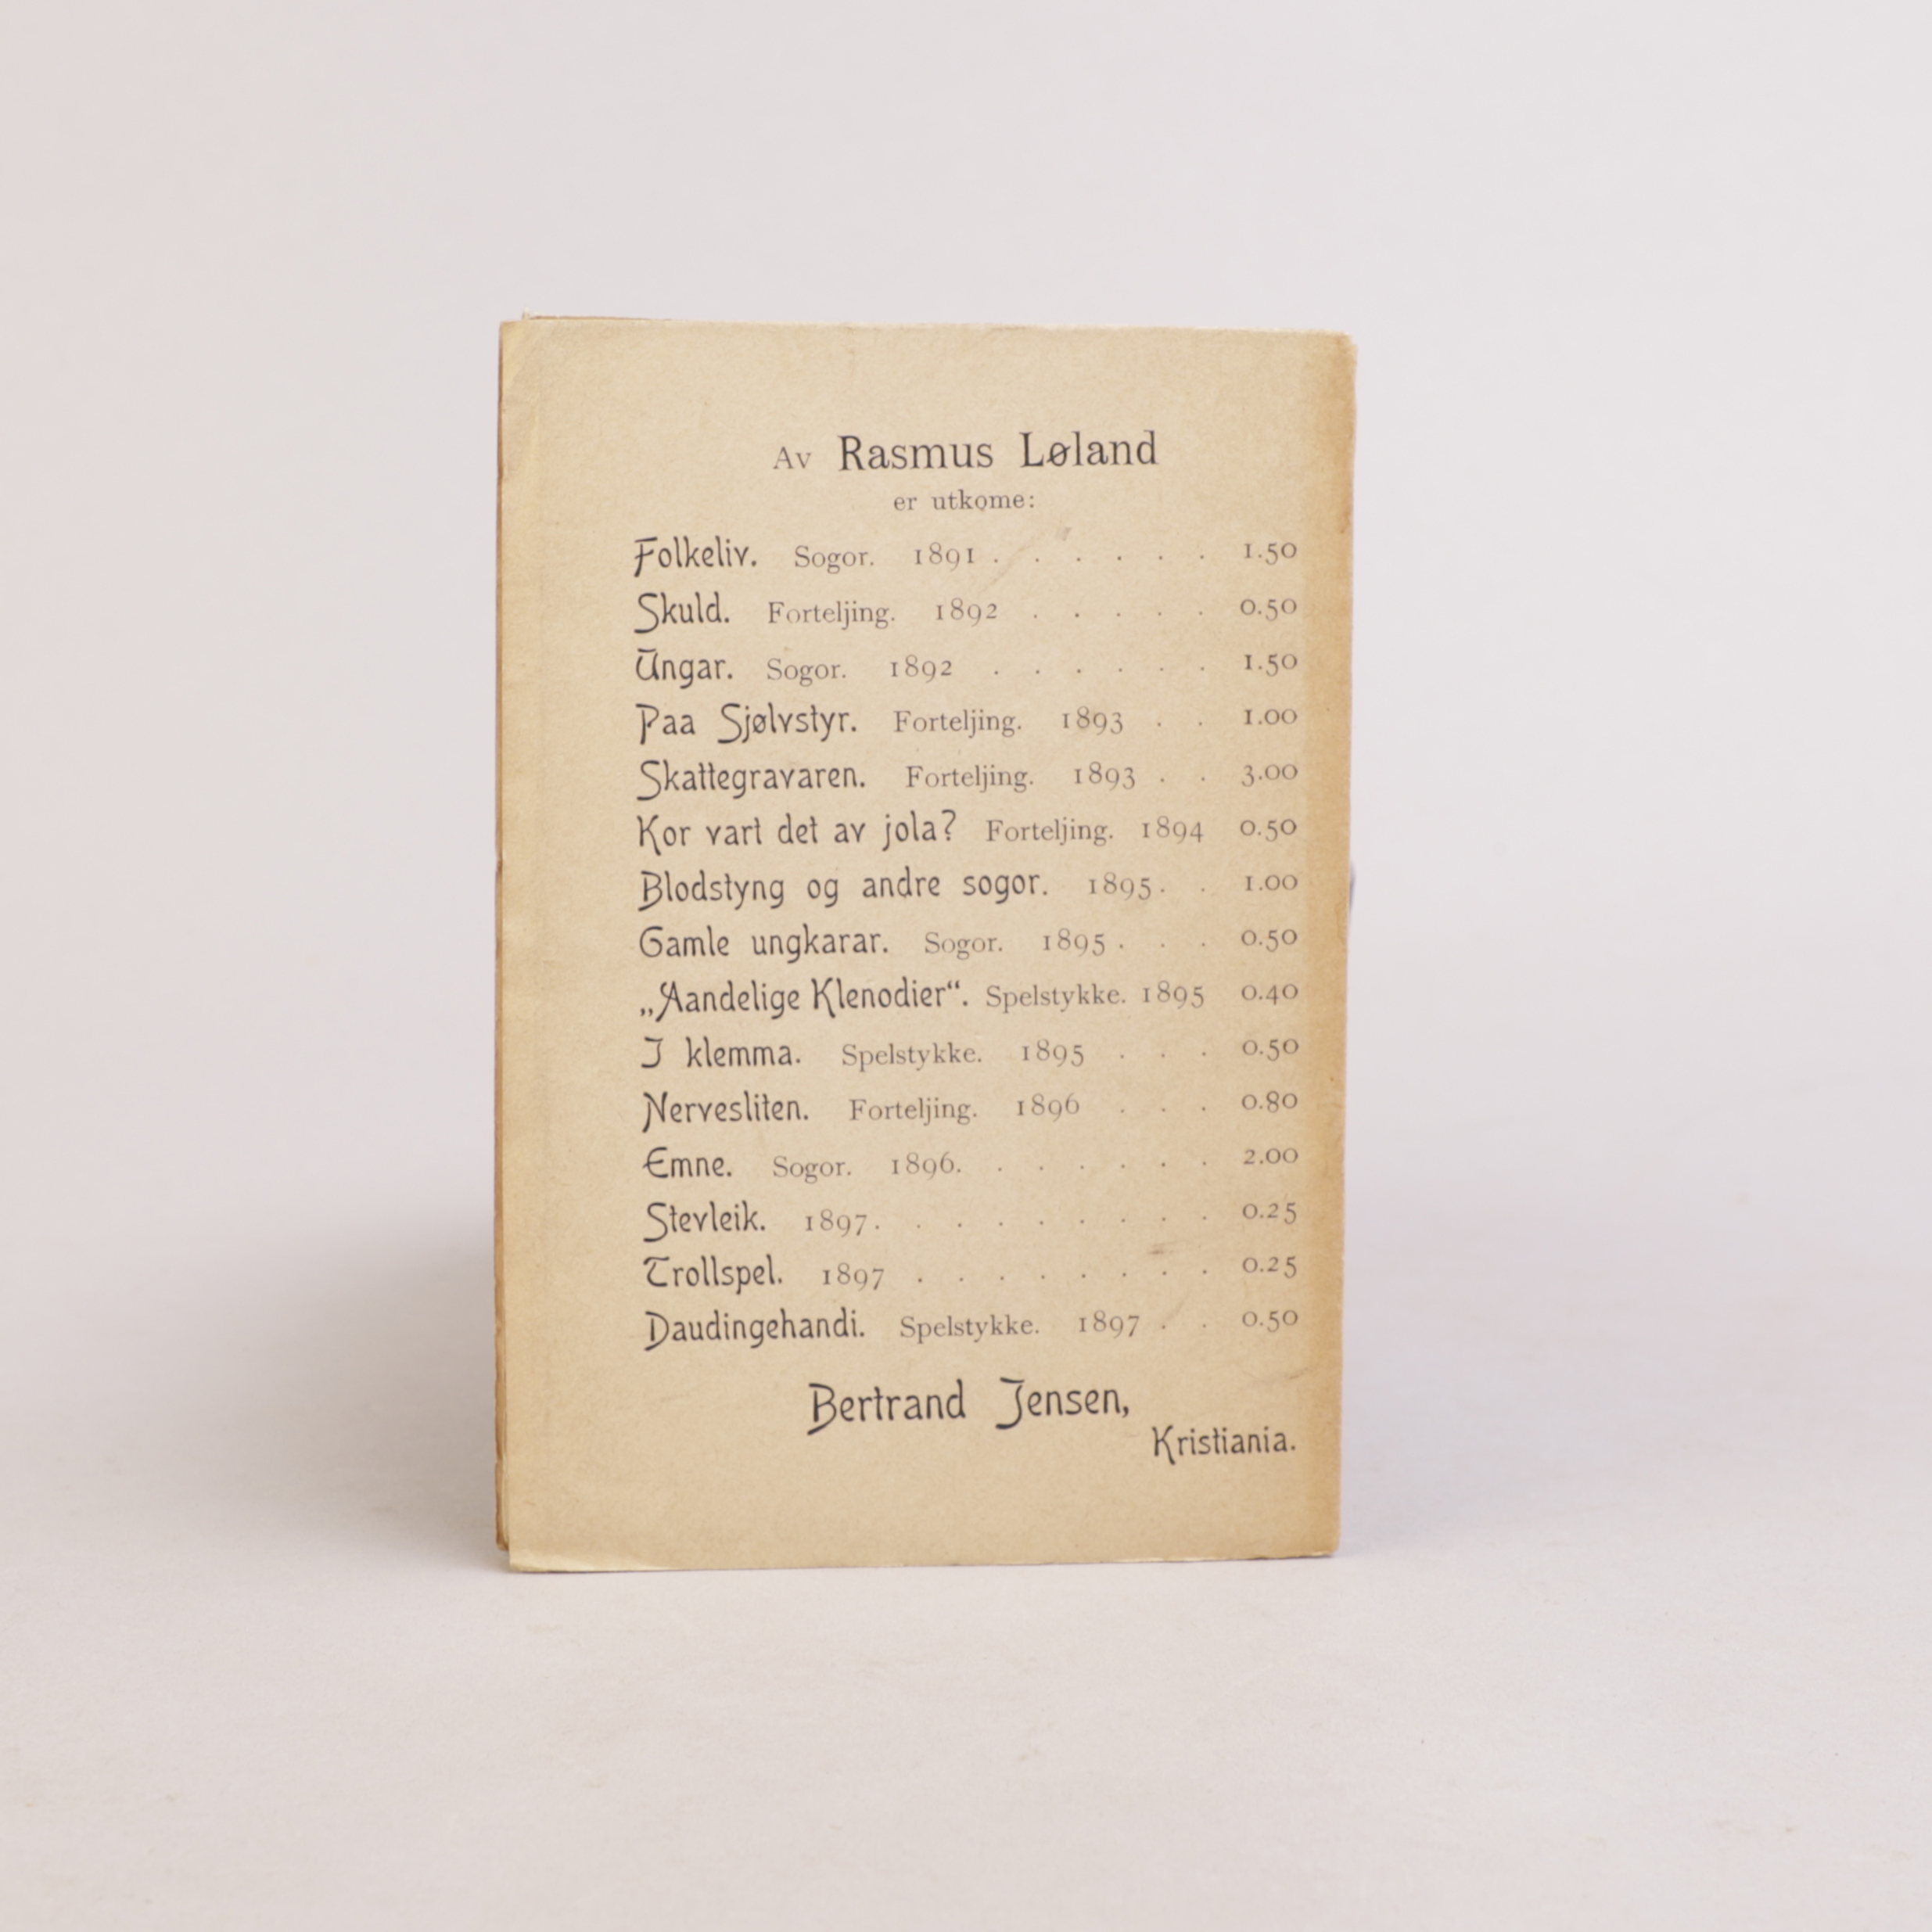 Av Rasmus Løland
er utkome:
Folkeliv. Sogor. 1891 . . . . . . 1.50
Skuld. Forteljing. 1892 . . . . . 0.50
Ungar. Sogor. 1892 . . . . . . 1.50
Paa Sjølvstyr. Forteljing. 1893 . . 1.00
Skattegravaren. Forteljing. 1893 . . 3.00
Kor vart det av jola? Forteljing. 1894 0.50
Blodstyng og andre sogor. 1895. . 1.00
Gamle ungkarar. Sogor. 1895 . . . 0.50
„Aandelige Klenodier“. Spelstykke. 1895 0.40
I klemma. Spelstykke. 1895 . . . 0.50
Nervesliten. Forteljing. 1896 . . . 0.80
Emne. Sogor. 1896. . . . . . . 2.00
Stevleik. 1897. . . . . . . . . 0.25
Trollspel. 1897 . . . . . . . . 0.25
Daudingehandi. Spelstykke. 1897 . . 0.50
Bertrand Jensen,
Kristiania.